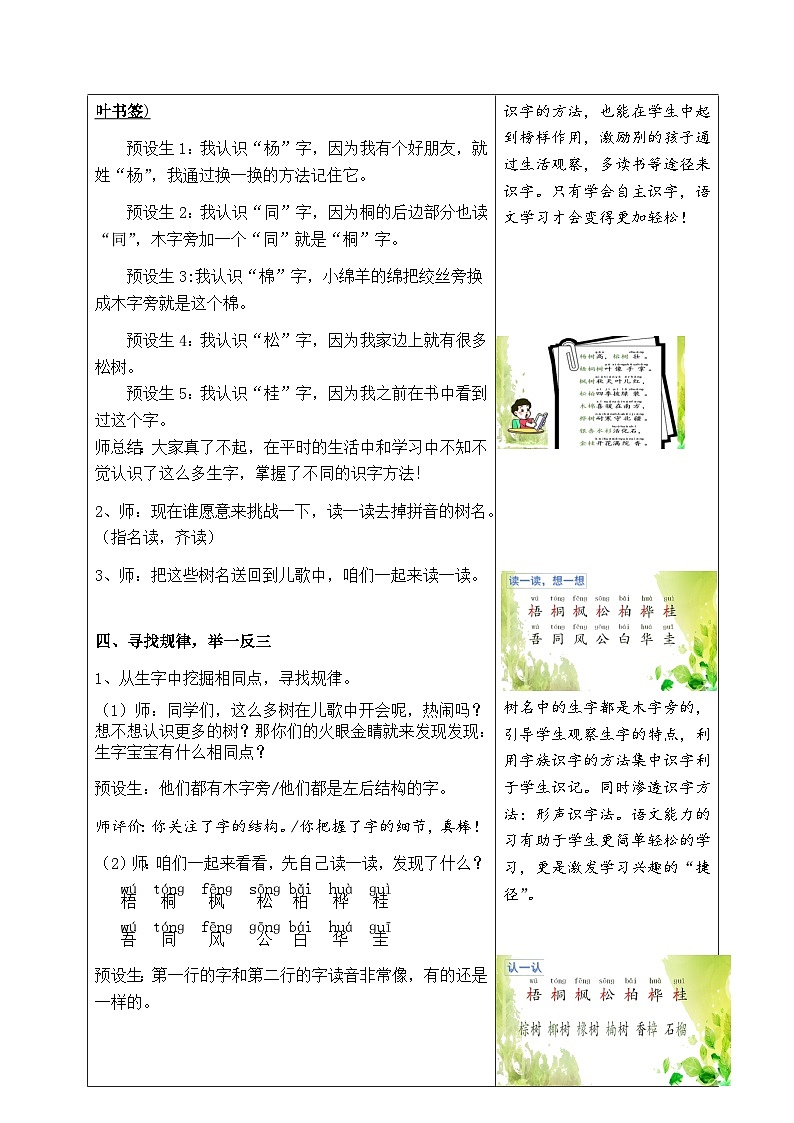 叶书签)
预设生1：我认识“杨”字，因为我有个好朋友，就
姓“杨”，我通过换一换的方法记住它。
预设生2：我认识“同”字，因为桐的后边部分也读
“同”，木字旁加一个“同”就是“桐”字。
预设生3:我认识“棉”字，小绵羊的绵把绞丝旁换
成木字旁就是这个棉。
预设生4：我认识“松”字，因为我家边上就有很多
松树。
预设生5：我认识“桂”字，因为我之前在书中看到
过这个字。
师总结：大家真了不起，在平时的生活中和学习中不知不
觉认识了这么多生字，掌握了不同的识字方法！
2、师：现在谁愿意来挑战一下，读一读去掉拼音的树名。
（指名读，齐读）
3、师：把这些树名送回到儿歌中，咱们一起来读一读。
四、寻找规律，举一反三
1、从生字中挖掘相同点，寻找规律。
（1）师：同学们，这么多树在儿歌中开会呢，热闹吗？
想不想认识更多的树？那你们的火眼金睛就来发现发现：
生字宝宝有什么相同点？
预设生：他们都有木字旁/他们都是左后结构的字。
师评价：你关注了字的结构。/你把握了字的细节，真棒！
（2）师：咱们一起来看看，先自己读一读，发现了什么？
wú tóng fēng sōng bǎi huà guì
梧 桐 枫 松 柏 桦 桂
wú tóng fēng gōng bái huá guī
吾 同 风 公 白 华 圭
预设生：第一行的字和第二行的字读音非常像，有的还是
一样的。
识字的方法，也能在学生中起
到榜样作用，激励别的孩子通
过生活观察，多读书等途径来
识字。只有学会自主识字，语
文学习才会变得更加轻松！
杨树高，榕树壮，
梧桐树叶像手掌。
枫树秋天叶儿红，
松柏四季披绿装。
木棉喜暖在南方，
桦树耐寒守北疆。
银杏水杉活化石，
金桂开花满院香。
读一读，想一想
wú tóng fēng sōng bǎi huà guì
梧 桐 枫 松 柏 桦 桂
wú tóng fēng gōng bái huá guī
吾 同 风 公 白 华 圭
树名中的生字都是木字旁的，
引导学生观察生字的特点，利
用字族识字的方法集中识字利
于学生识记。同时渗透识字方
法：形声识字法。语文能力的
习有助于学生更简单轻松的学
习，更是激发学习兴趣的“捷
径”。
认一认
wú tóng fēng sōng bǎi huà guì
梧 桐 枫 松 柏 桦 桂
棕树 椰树 橡树 楠树 香樟 石榴